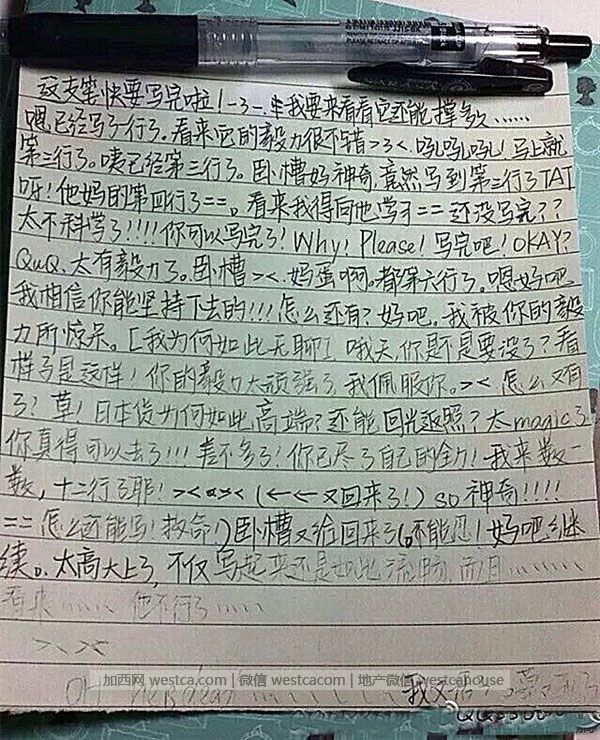 这支笔快要写完啦！-3-. 我要来看看它还能撑多久……
嗯已经写了一行了。看来它的毅力很不错>3<. 吼吼吼！马上就
第二行了。咦已经第三行了。卧槽好神奇，竟然写到第三行了TAT
呀！他妈的第四行了==。看来我得向他学习==还没写完？？
太不科学了！！！！你可以写完了！Why！Please！写完吧！OKAY？
QuQ. 太有毅力了。卧槽><. 妈蛋啊。都第六行了。嗯好吧
我相信你能坚持下去的！！！怎么还有？好吧。我被你的毅
力所惊呆。[我为何如此无聊]. 哦天，你是不是要没了？看
样子是这样！你的毅力太顽强了，我佩服你。>< 怎么又有
了？草！日本货为何如此高端？还能回光返照？太magic了
你真得可以去了！！！差不多了！你已尽了自己的全力！我来数一
数，十二行了耶！ (←←又回来了！) so 神奇！！！！
== 怎么还能写！救命！) 卧槽又给回来了(。不能忍！好吧继
续。. 太高大上了，不仅写起来还是如此流畅，而且………
看来…… 他不行了……
>、><
OH
我又
加西网 westca.com | 微信 westcacom | 地产微信 westcahouse